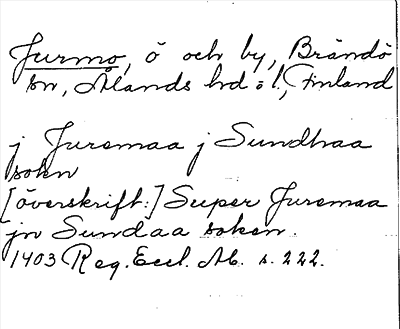 Jurmo, ö och by, Brändö
sn, Ålands hd o l., Finland
j Juremaa j Sundhaa
sokn
[överskrift:] Super Juremaa
jn Sundaa soken.
1403 Reg. Eccl. Ab. s. 222.